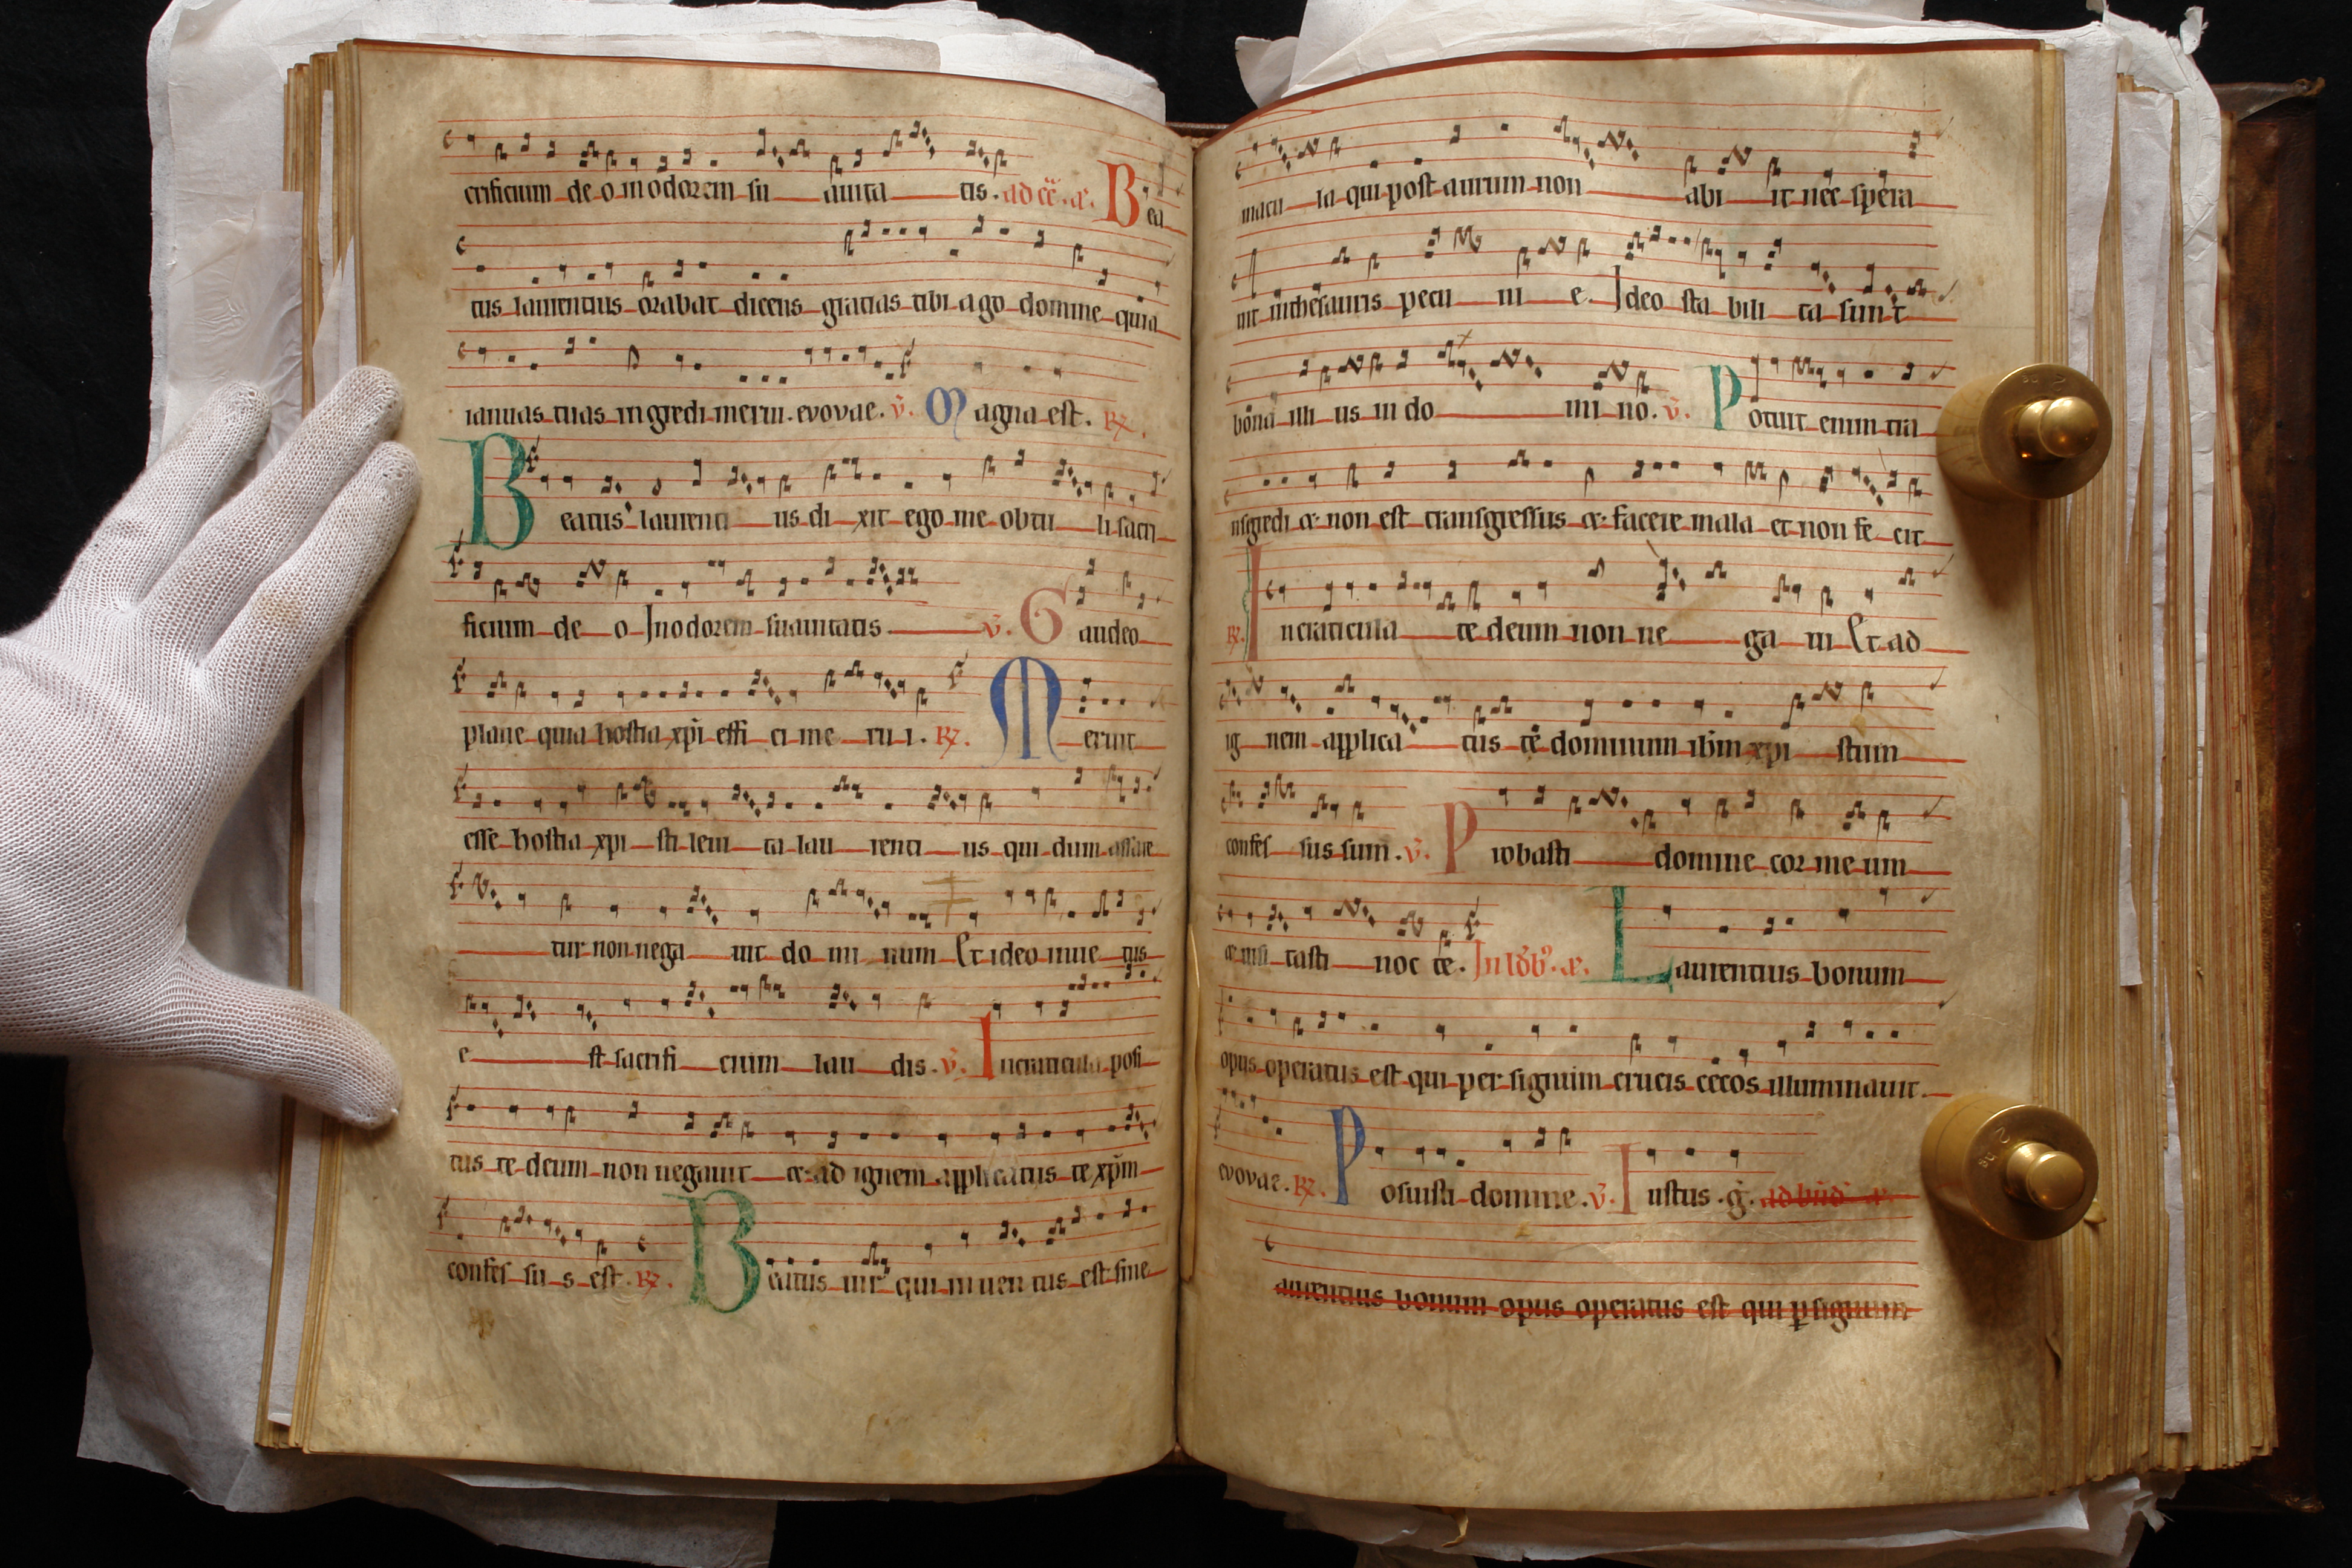 crificium de o in odorem su auita tis. ad cē. a. Bea
tus laurentius orabat dicens gratias tibi ago domine quia
ianuas tuas ingredi merui. evovae. v̄. Magna est. R.
Beatus laurenti us di xit ego me obtu li sacri
ficium de o In odorem suauitatis v̄. Gaudeo
plane quia hostia xp̄i effi ci me ru i. R. Meruit
esse hostia xpi sti leui ta lau renti us qui dum assare
tur non nega uit do mi num Et ideo inue tus
e st sacrifi cium lau dis. v̄. In craticula posi
tus te deum non negauit et ad ignem applicatus te xp̄m
confes su s est. R. Beatus uir qui inuen tus est sine
macu la qui post aurum non abi it nec spera
uit in thesauris pecu ni e. Ideo sta bili ta sunt
bona illi us in do mi no. v̄. Potuit enim tra
nsgredi et non est transgressus et facere mala et non fe cit
R. In craticula te deum non ne ga ui Et ad
ig nem applica tus te dominum ih̄m xpi stum
confes sus sum. v̄. Probasti domine cor me um
et uisi tasti noc te. In a. Laurentius bonum
opus operatus est qui per signum crucis cecos illuminauit.
evovae. R. Posuisti domine. v̄. Iustus. g. ad a.
aurentius bonum opus operatus est qui p signum